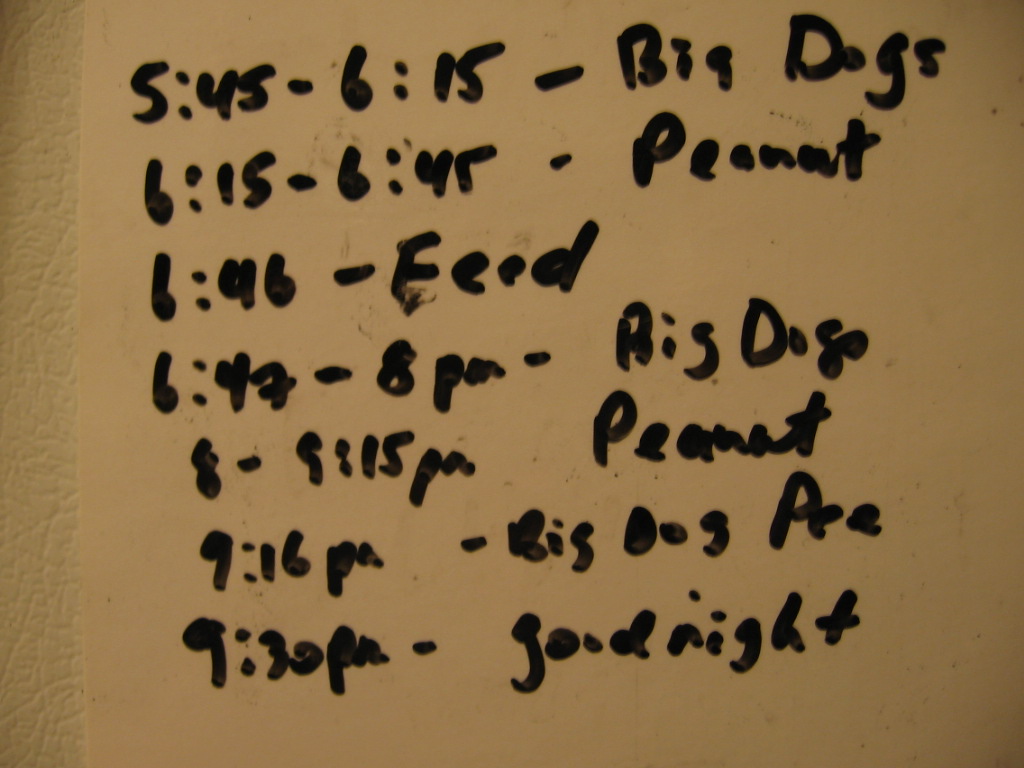 5:45 - 6:15 - Big Dogs
6:15 - 6:45 - Peanut
6:46 - Feed
6:47 - 8pm - Big Dogs
8 - 9:15pm Peanut
9:16pm - Big Dog Pee
9:30pm - goodnight